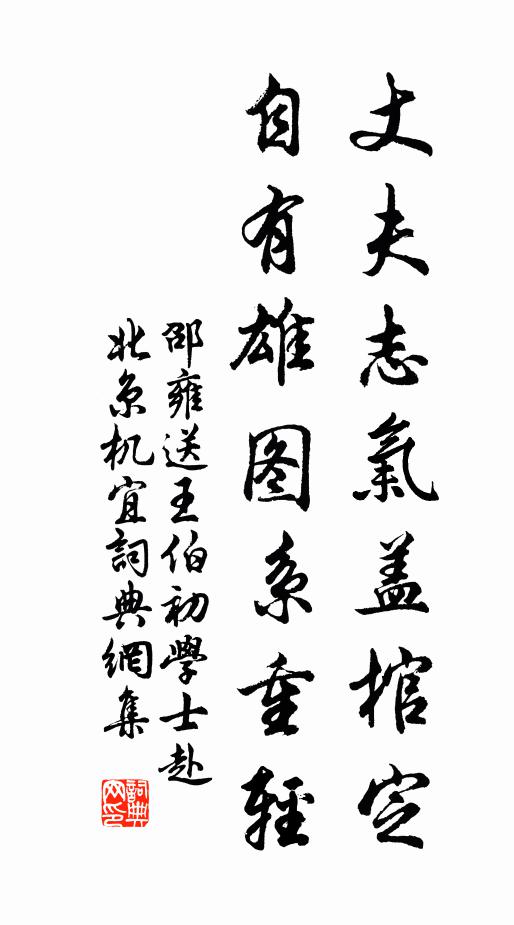 丈夫志氣盖棺定
自有雄图系重輕
邵雍送王伯初學士赴
北京机宜詞典網集
詞典网印